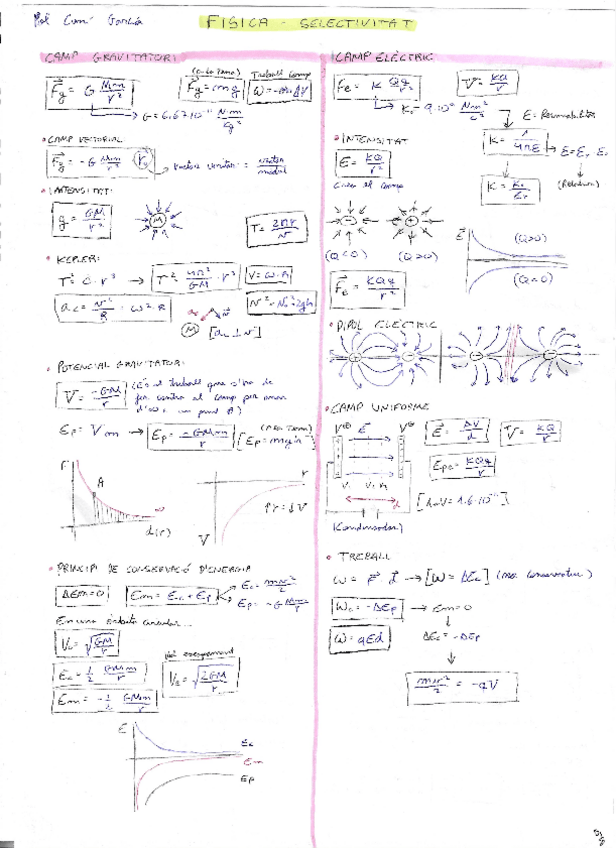 FISICA - SELECTIVITAT
CAMP GRAVITATORI
Fg = G Mm/r²
(a la Terra)
Fg = mg
Treball Camp
W = -m·ΔV
G = 6.67·10⁻¹¹ N·m²/kg²
• CAMP VECTORIAL
Fg = -G Mm/r²
vector unitari = vector/mòdul
• INTENSITAT:
g = GM/r²
M
T = 2πr/v
• KEPLER:
T² = C · r³ → T² = 4π²/GM · r³
V = ω·R
ac = v²/R = ω²·R
M
[ac ⊥ v]
• POTENCIAL GRAVITATORI
V = -GM/r
(És el treball que s'ha de
fer contra el camp per
un punt A)
Ep = V·m → Ep = -GMm/r
F
A
∞
d(r)
r
V
↑r = ↓V
• PRINCIPI DE CONSERVACIÓ D'ENERGIA
ΔEm = 0
Em = Ec + Ep
Ec = mv²/2
Ep = -G Mm/r
En una òrbita circular...
V = √GM/r
Ec = 1/2 GMm/r
Em = -1/2 GMm/r
Ve = √2GM/r
E
Ec
Em
Ep
CAMP ELÈCTRIC
Fe = K Qq/r²
V = KQ/r
K = 9·10⁹ N·m²/C²
K = 1/4πε
K = K₀/εr
• INTENSITAT
E = KQ/r²
Crea el camp
(Q<0) (Q>0)
E
(Q>0)
(Q<0)
Fe = KQq/r²
• DIPOL ELÈCTRIC
• CAMP UNIFORME
E = ΔV/d
V = KQ/r
Epe = KQq/r
d
(Condensador)
• TREBALL
W = F · d → [W = ΔEc] (no conservatiu)
Wc = -ΔEp → Em = 0
W = qEd
ΔEc = -ΔEp
mv²/2 = -qV